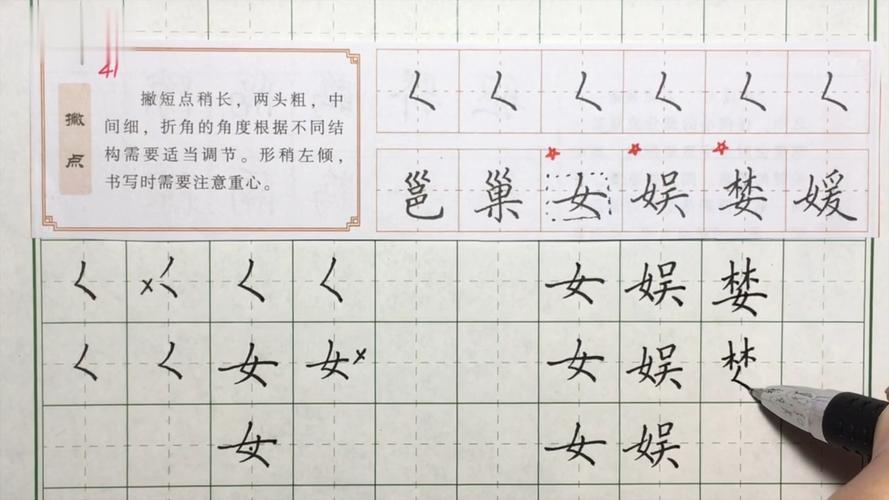 41
撇点
撇短点稍长，两头粗，中
间细，折角的角度根据不同结
构需要适当调节。形稍左倾，
书写时需要注意重心。
𡿨 𡿨 𡿨 𡿨 𡿨 𡿨
邕 巢 女 娱 婪 媛
𡿨 x 𡿨 𡿨 𡿨 女 娱 婪
𡿨 𡿨 女 女 x 女 娱
女 女 娱